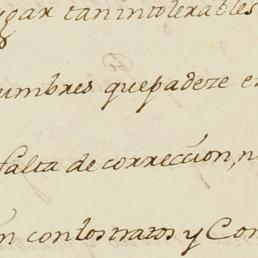 gar tan intolerables
umbres que padeze e
falta de correccion, n
n con los tratos y Con